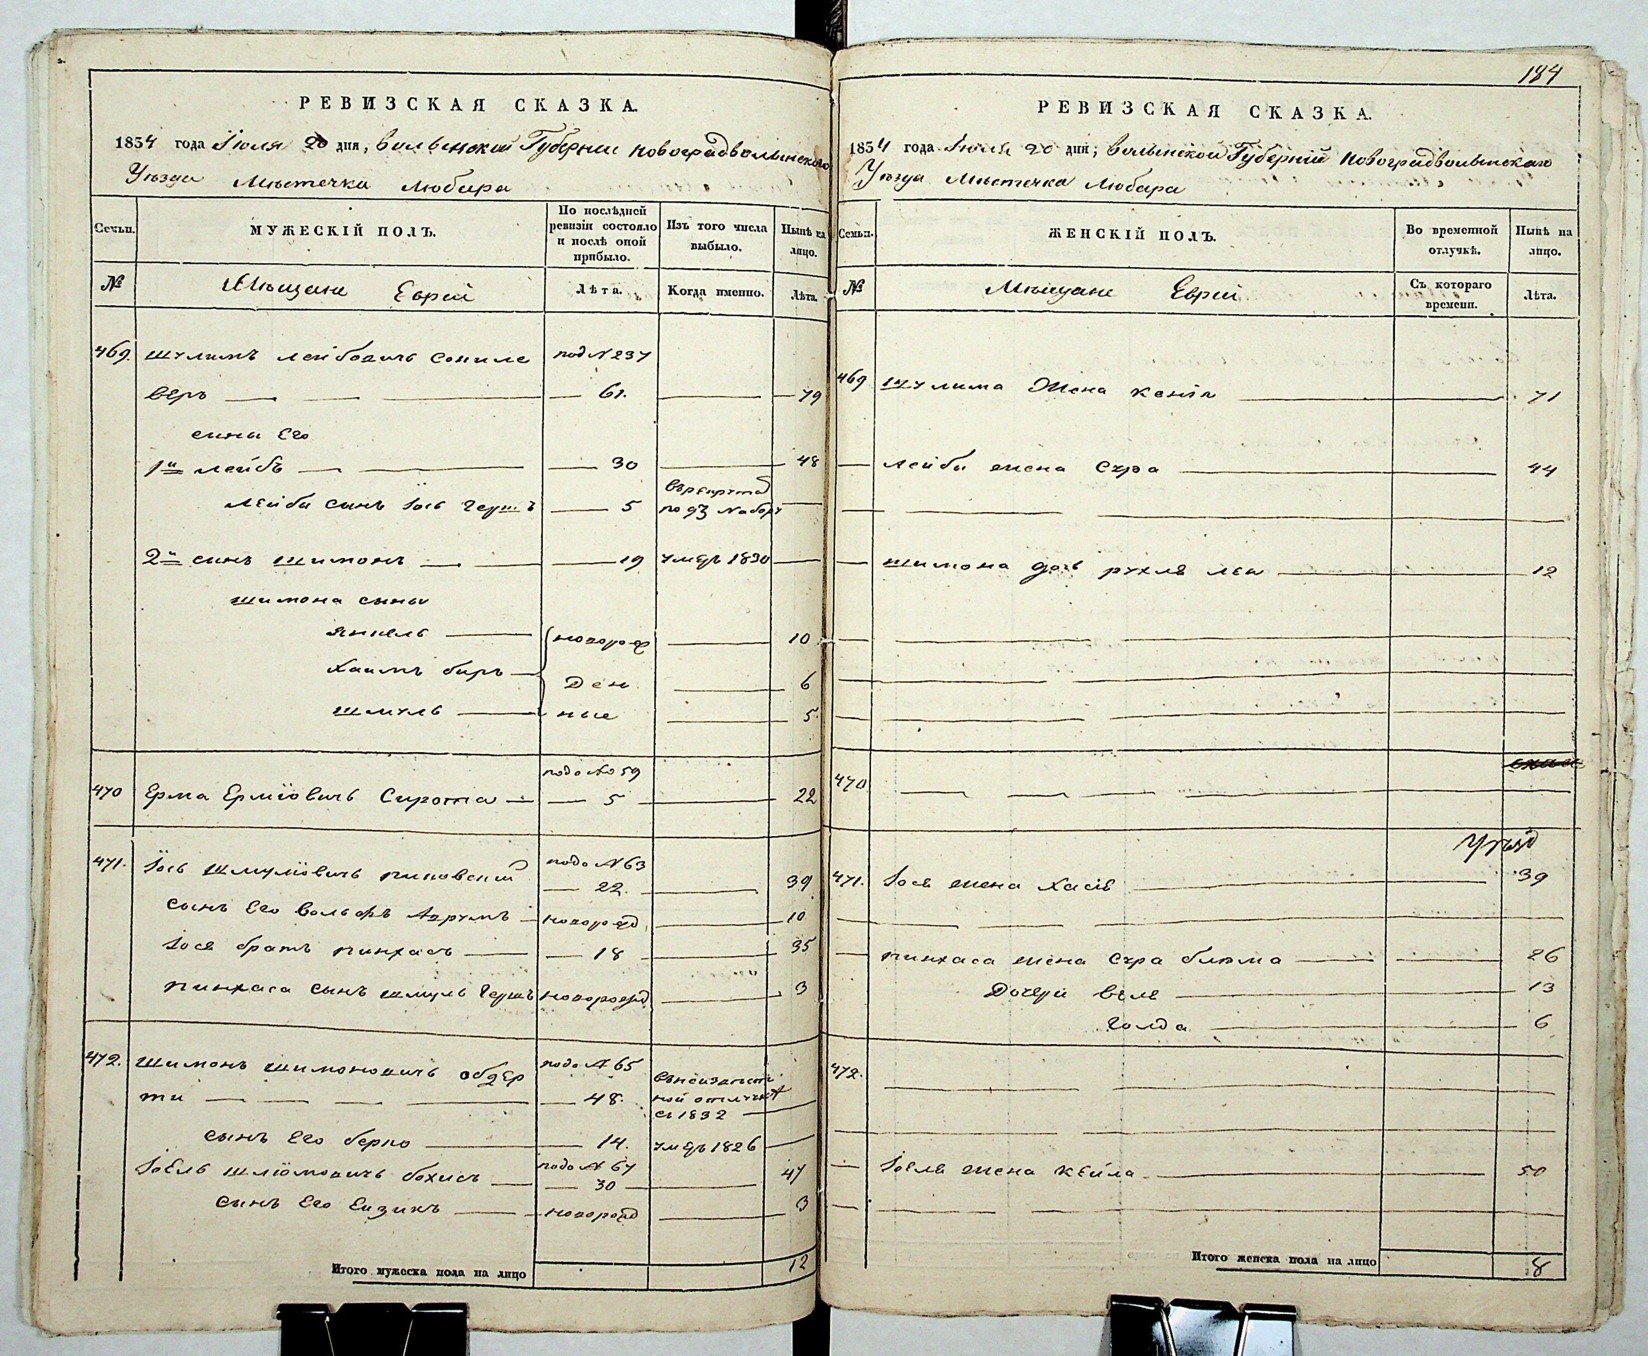 РЕВИЗСКАЯ СКАЗКА.
1834 года Іюля 20 дня, Волынской Губерніи Новоградволынского
Уѣзда Мѣстечка Любара
Семьи. МУЖЕСКІЙ ПОЛЪ. По послѣдней ревизіи состояло и послѣ оной прибыло. Изъ того числа выбыло. Нынѣ на лицо.
№ Мѣщане Еврей Лѣта. Когда именно. Лѣта.
469. Шулимъ Лейбовичъ Сопиле под N 237
веръ 61. 79
сыны Его
1й Лейбъ 30 48
Лейбы сынъ Іось Гершъ 5 в рекруты по 93 набору
2й сынъ Шимонъ 19 умеръ 1830
Шимона сыны
Янкель новорож 10
Хаимъ Беръ ден 6
Шмуль ные 5
подо No 59
470 Ерма Ерміовичъ Сирота 5 22
471. Іось Шмуліовичъ Пиковский подо N 63
22. 39
сынъ Его Вольфъ Аврумъ новорожд. 10
Іося братъ Пинхасъ 18 35
Пинхаса сынъ Шмуль Гершъ новорожд 3
472. Шимонъ Шимоновичъ Обдер подо N 65
ти 48. в неизвѣстной отлучкѣ с 1832
сынъ Его Берко 14. умеръ 1826
Іоель Шліомовичъ Бохисъ подо N 67
30 47
сынъ Его Ейзикъ новорожд 3
Итого мужеска пола на лицо 12
184
РЕВИЗСКАЯ СКАЗКА.
1834 года Іюля 20 дня, Волынской Губерніи Новоградволынского
Уѣзда Мѣстечка Любара
Семьи. ЖЕНСКІЙ ПОЛЪ. Во временной отлучкѣ. Нынѣ на лицо.
№ Мѣщане Еврей Съ котораго времени. Лѣта.
469 Шулима Жена Кеніа 71
Лейбы жена Сура 44
Шимона дочь Рухля Леа 12
470
471. Іося жена Хася 39
Пинхаса жена Сура Блюма 26
Дочери Веля 13
Голда 6
472.
Іоеля жена Кейла 50
Итого женска пола на лицо 8